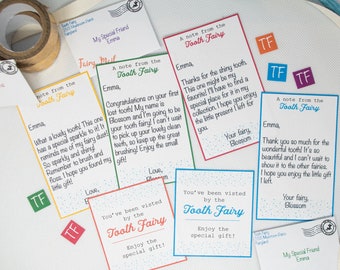 My Special Friend
Emma
A note from the
Tooth Fairy
Emma,
What a lovely tooth! This one
has a special sparkle to it! It
reminds me of my fairy dust!
So sparkly and shiny!
Remember to brush and
floss. I hope you found my
little gift!
Love,
A note from the
Tooth Fairy
Emma,
Congratulations on your first
lost tooth! My name is
Blossom and I'm going to be
your tooth fairy! I can't wait
to pick up your lovely clean
teeth, so keep up the great
brushing! Enjoy the small
gift!
Love,
Blossom
A note from the
Tooth Fairy
Emma,
Thanks for the shiny tooth.
This one might be my
favorite! I'll have to find a
special place for it in my
collection. I hope you enjoy
the little present I left for
you.
Your fairy,
Blossom
A note from the
Tooth Fairy
Emma,
Thank you so much for the
wonderful tooth! It's so
beautiful and I can't wait to
show it to the other fairies.
I hope you enjoy the little gift
I left.
Your fairy,
Blossom
TF
TF
TF
TF
TF
TF
You've been visited
by the
Tooth Fairy
Enjoy the
special gift!
You've been visited
by the
Tooth Fairy
Enjoy the
special gift!
My Special Friend
Emma